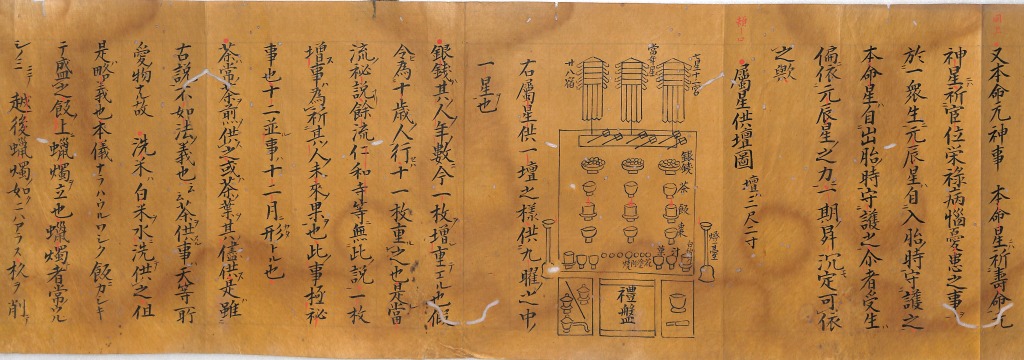 又本命元神事 本命星祈壽命元
神星祈官位栄祿病惱憂患之事
於一衆生元辰星自入胎時守護之
本命星自出胎時守護之介者受生
偏依元辰星之力一期昇沉定可依
之歟
属星供壇圖 壇三尺二寸
七星十二宮
當年星
廿八宿
銀錢
茶
飯
菓
禮盤
右属星供一壇之様供九曜之中
一星也
銀錢其人年數今一枚増重エル也假
令為十歳人行十一枚重之也是當
流秘説餘流仁和寺等無此説一枚
増事為祈其人未來果也此事極秘
事也十二並事十二月形トル也
茶常茶煎供之或茶葉其儘供是雖
古説不如法義也云茶供事天等所
愛物ナル故 洗米白米水洗供之但
是略義也本儀ナラハウルワシク飯カシキ
テ盛之飯上蠟燭立也蠟燭者常ル
シミニテ越後蠟燭如ニハアラス杉ヲ削